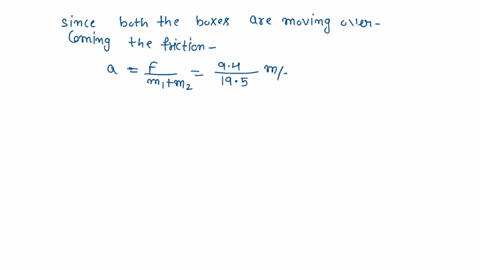 since both the boxes are moving over-
coming the friction-
a = F/(m₁+m₂) = 9.4/19.5 m/